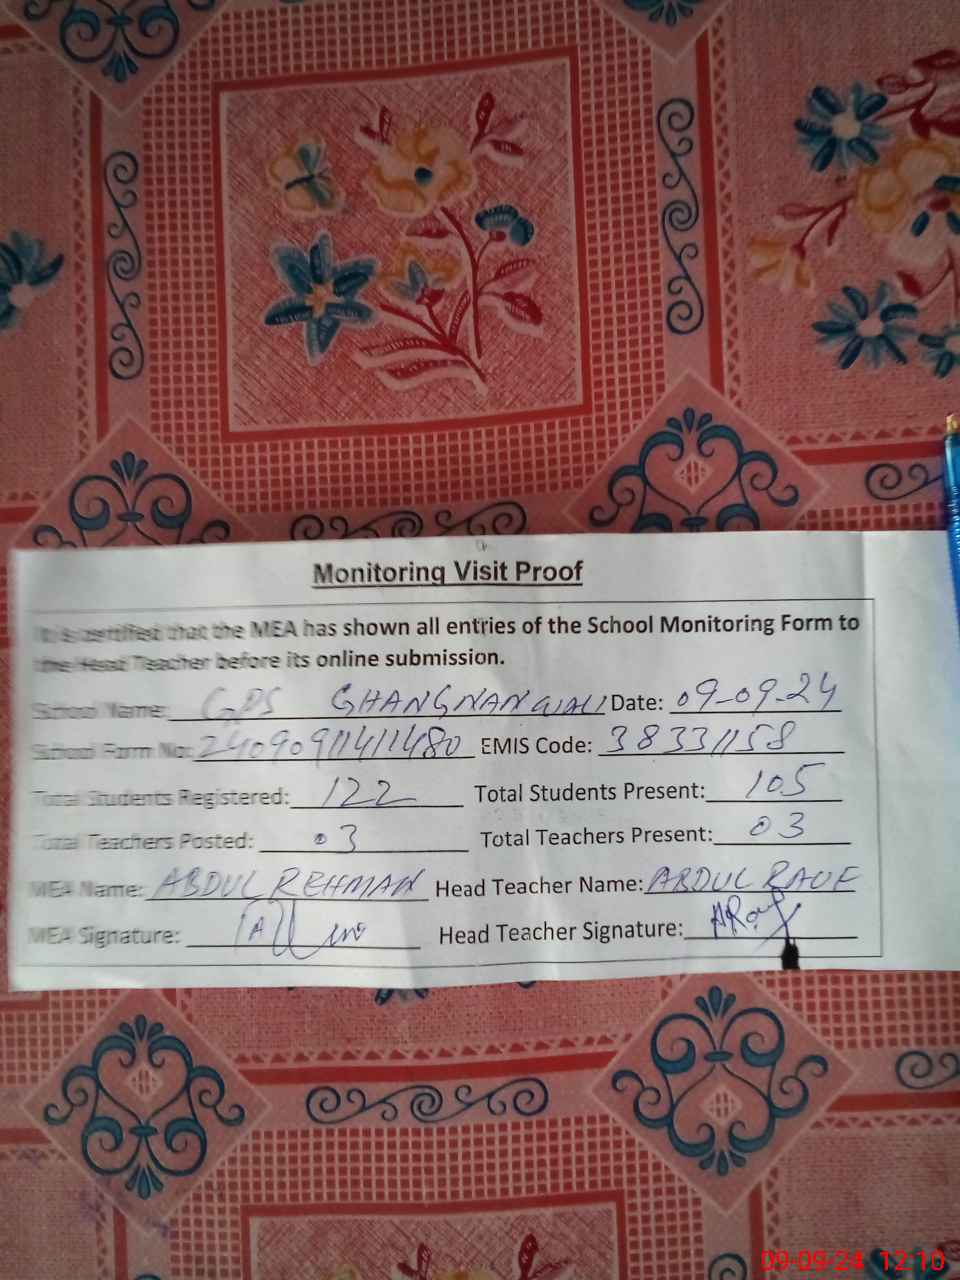 Monitoring Visit Proof
It is certified that the MEA has shown all entries of the School Monitoring Form to
the Head Teacher before its online submission.
School Name: GPS GHANGNANWALI Date: 09-09-24
School Form No: 24090911411480 EMIS Code: 38331158
Total Students Registered: 122 Total Students Present: 105
Total Teachers Posted: 03 Total Teachers Present: 03
MEA Name: ABDUL REHMAN Head Teacher Name: ABDUL RAUF
MEA Signature: Head Teacher Signature:
09-09-24 12:10